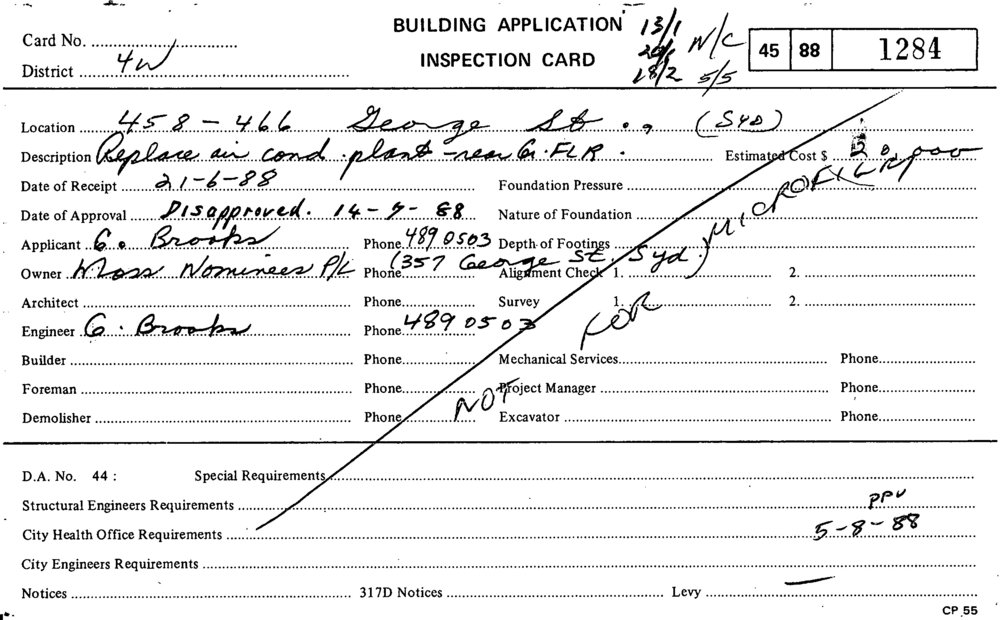 BUILDING APPLICATION 13/1
Card No. INSPECTION CARD N/C 45 88 1284
District 4W 18/2 5/5
Location 458-466 George St., (SYD)
Description Replace air cond. plant - rear G.FLR. Estimated Cost $ 20,000
Date of Receipt 21-6-88 Foundation Pressure
Date of Approval Disapproved. 14-7-88 Nature of Foundation
Applicant G. Brooks Phone 489 0503 Depth of Footings
Owner Moss Nominees P/L Phone (357 George St. Syd.) Alignment Check 1. 2.
Architect Phone Survey 1. 2.
Engineer G. Brooks Phone 489 0503
Builder Phone Mechanical Services Phone
Foreman Phone Project Manager Phone
Demolisher Phone Excavator Phone
NOT FOR MICROFILM
D.A. No. 44 : Special Requirements
Structural Engineers Requirements PPU
City Health Office Requirements 5-8-88
City Engineers Requirements
Notices 317D Notices Levy —
CP 55